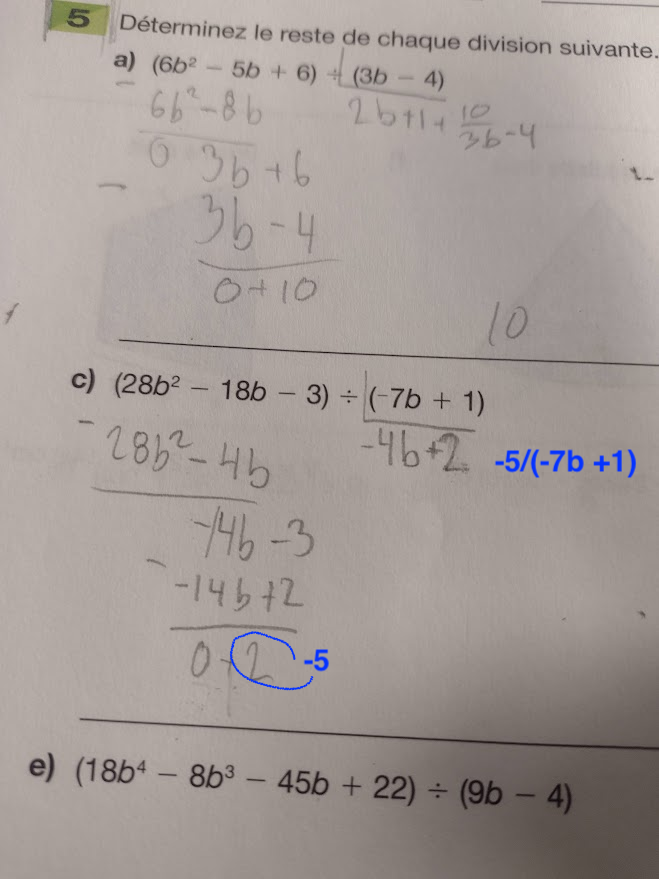 5 Déterminez le reste de chaque division suivante.
a) (6b² − 5b + 6) ÷ (3b − 4)
− 6b² − 8b 2b + 1 + 10/3b − 4
0 3b + 6
− 3b − 4
0 + 10
10
c) (28b² − 18b − 3) ÷ (-7b + 1)
− 28b² − 4b -4b + 2 -5/(-7b +1)
-14b − 3
− -14b + 2
0 + 2 -5
e) (18b⁴ − 8b³ − 45b + 22) ÷ (9b − 4)